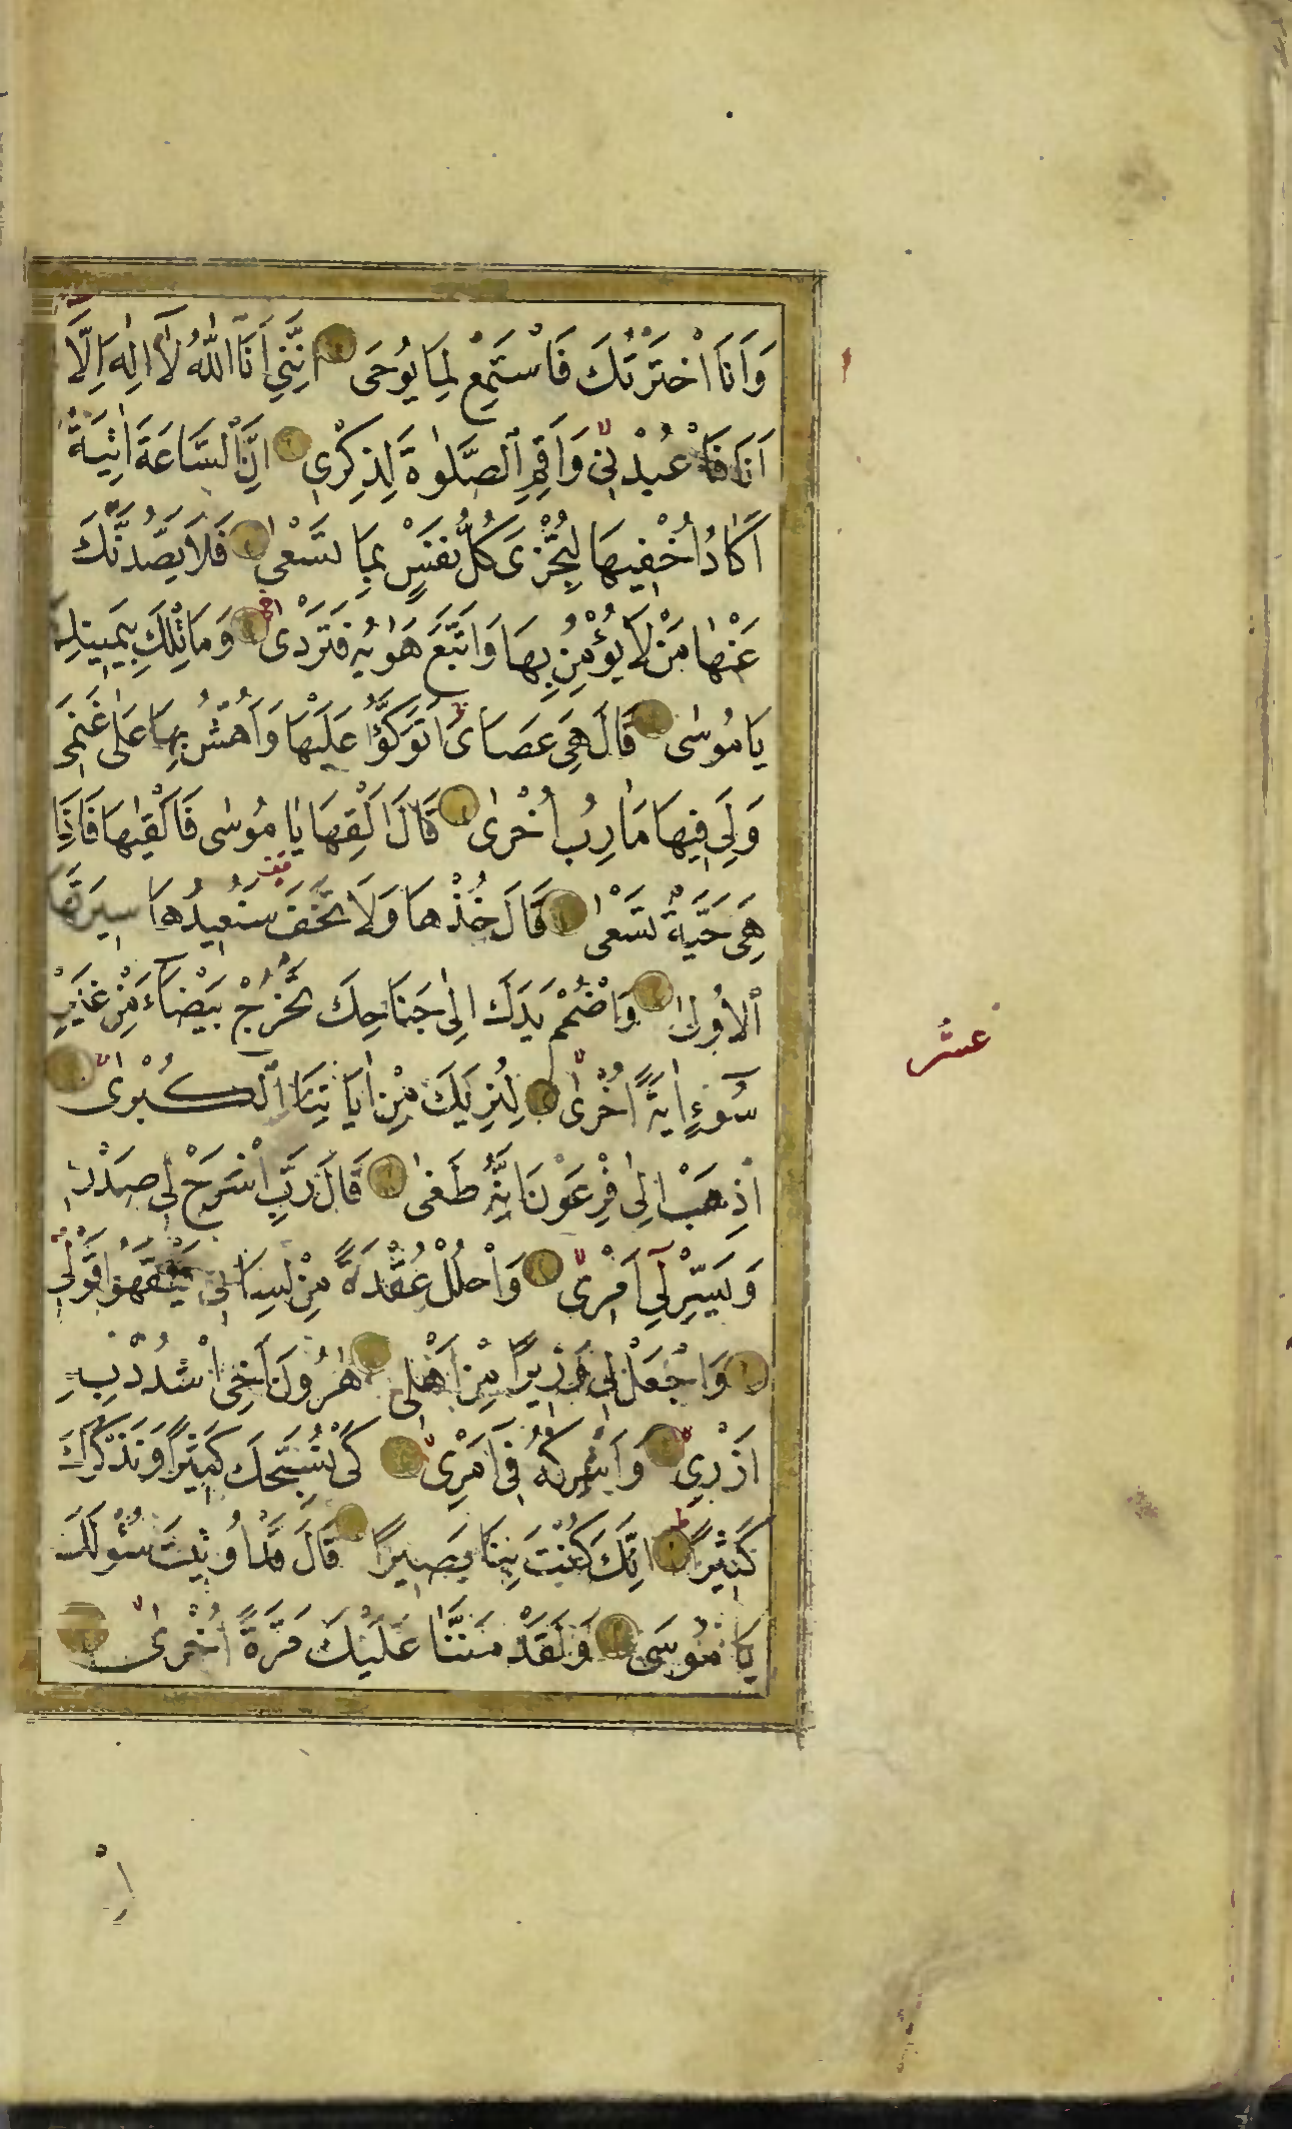 وَاَنَا اخْتَرْتُكَ فَاسْتَمِعْ لِمَا يُوحَى اِنَّنِي اَنَا اللّٰهُ لَا اِلٰهَ اِلَّا
اَنَا فَاعْبُدْنِي وَاَقِمِ الصَّلٰوةَ لِذِكْرِي اِنَّ السَّاعَةَ اٰتِيَةٌ
اَكَادُ اُخْفِيهَا لِتُجْزٰى كُلُّ نَفْسٍ بِمَا تَسْعٰى فَلَا يَصُدَّنَّكَ
عَنْهَا مَنْ لَا يُؤْمِنُ بِهَا وَاتَّبَعَ هَوٰيهُ فَتَرْدٰى وَمَا تِلْكَ بِيَمِينِكَ
يَا مُوسٰى قَالَ هِيَ عَصَاىَ اَتَوَكَّؤُا عَلَيْهَا وَاَهُشُّ بِهَا عَلٰى غَنَمِي
وَلِيَ فِيهَا مَاٰرِبُ اُخْرٰى قَالَ اَلْقِهَا يَا مُوسٰى فَاَلْقٰيهَا فَاِذَا
هِيَ حَيَّةٌ تَسْعٰى قَالَ خُذْهَا وَلَا تَخَفْ سَنُعِيدُهَا سِيرَتَهَا
الْاُولٰى وَاضْمُمْ يَدَكَ اِلٰى جَنَاحِكَ تَخْرُجْ بَيْضَاءَ مِنْ غَيْرِ
سُوءٍ اٰيَةً اُخْرٰى لِنُرِيَكَ مِنْ اٰيَاتِنَا الْكُبْرٰى
اِذْهَبْ اِلٰى فِرْعَوْنَ اِنَّهُ طَغٰى قَالَ رَبِّ اشْرَحْ لِي صَدْرِي
وَيَسِّرْ لِي اَمْرِي وَاحْلُلْ عُقْدَةً مِنْ لِسَانِي يَفْقَهُوا قَوْلِي
وَاجْعَلْ لِي وَزِيرًا مِنْ اَهْلِي هٰرُونَ اَخِي اشْدُدْ بِهِ
اَزْرِي وَاَشْرِكْهُ فِي اَمْرِي كَيْ نُسَبِّحَكَ كَثِيرًا وَنَذْكُرَكَ
كَثِيرًا اِنَّكَ كُنْتَ بِنَا بَصِيرًا قَالَ قَدْ اُوتِيتَ سُؤْلَكَ
يَا مُوسٰى وَلَقَدْ مَنَنَّا عَلَيْكَ مَرَّةً اُخْرٰى
عشر
اِذْ